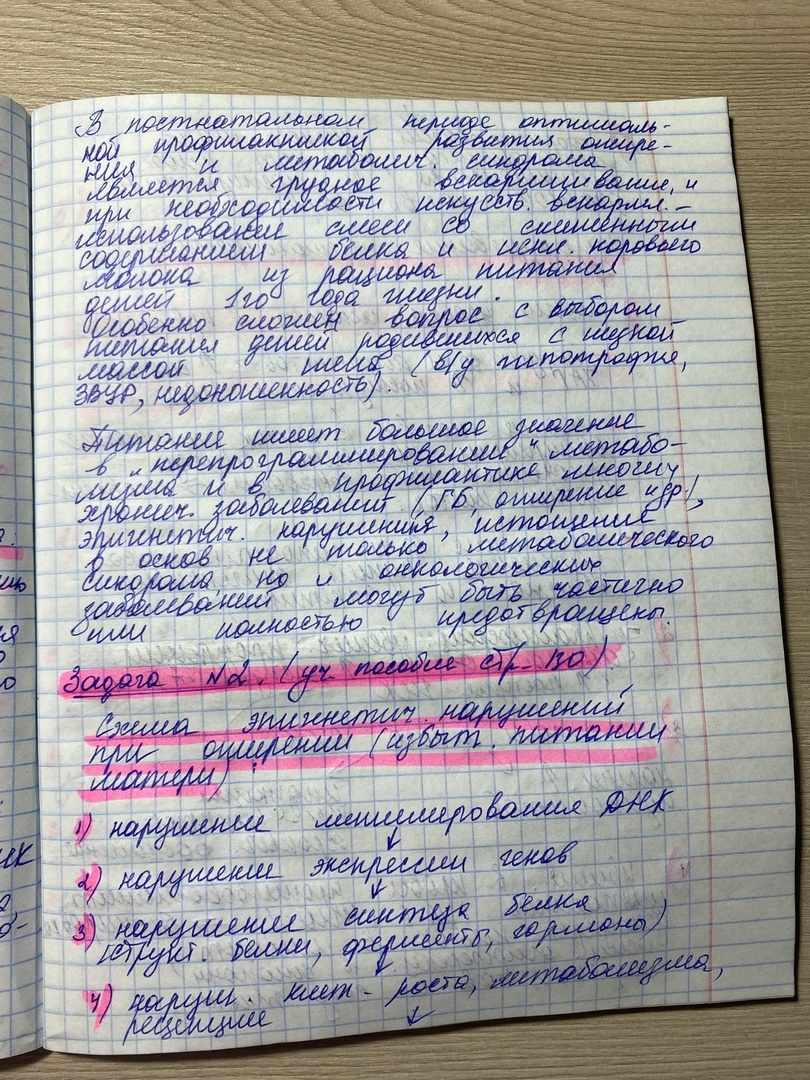 В постнатальном периоде оптималь-
ной профилактикой развития ожире-
ния и метаболич. синдрома
является грудное вскармливание, и
при необходимости искусств. вскармл. –
использование смеси со сниженными
содержанием белка и искл. коровьего
молока из рациона питания
детей 1го года жизни.
Особенно сложен вопрос с выбором
питания детей родившихся с низкой
массой тела (в/у гипотрофия,
ЗВУР, недоношенность).
Питание имеет большое значение
в „перепрограммировании" метабо-
лизма и в профилактике многих
хронич. заболеваний (ГБ, ожирение и др.),
эпигнетич. нарушения, истощение
в основ не только метаболического
синдрома, но и онкологических
заболеваний могут быть частично
или полностью предотвращены.
Задача №2. (уч. пособие стр. 130)
Схема эпигнетич. нарушений
при ожирении (избыт. питании
матери):
1) нарушение метилирования ДНК
↓
2) нарушение экспрессии генов
↓
3) нарушение синтеза белка
(структ. белки, ферменты, гормоны)
↓
4) наруш. клет. роста, метаболизма,
рецепции
↓